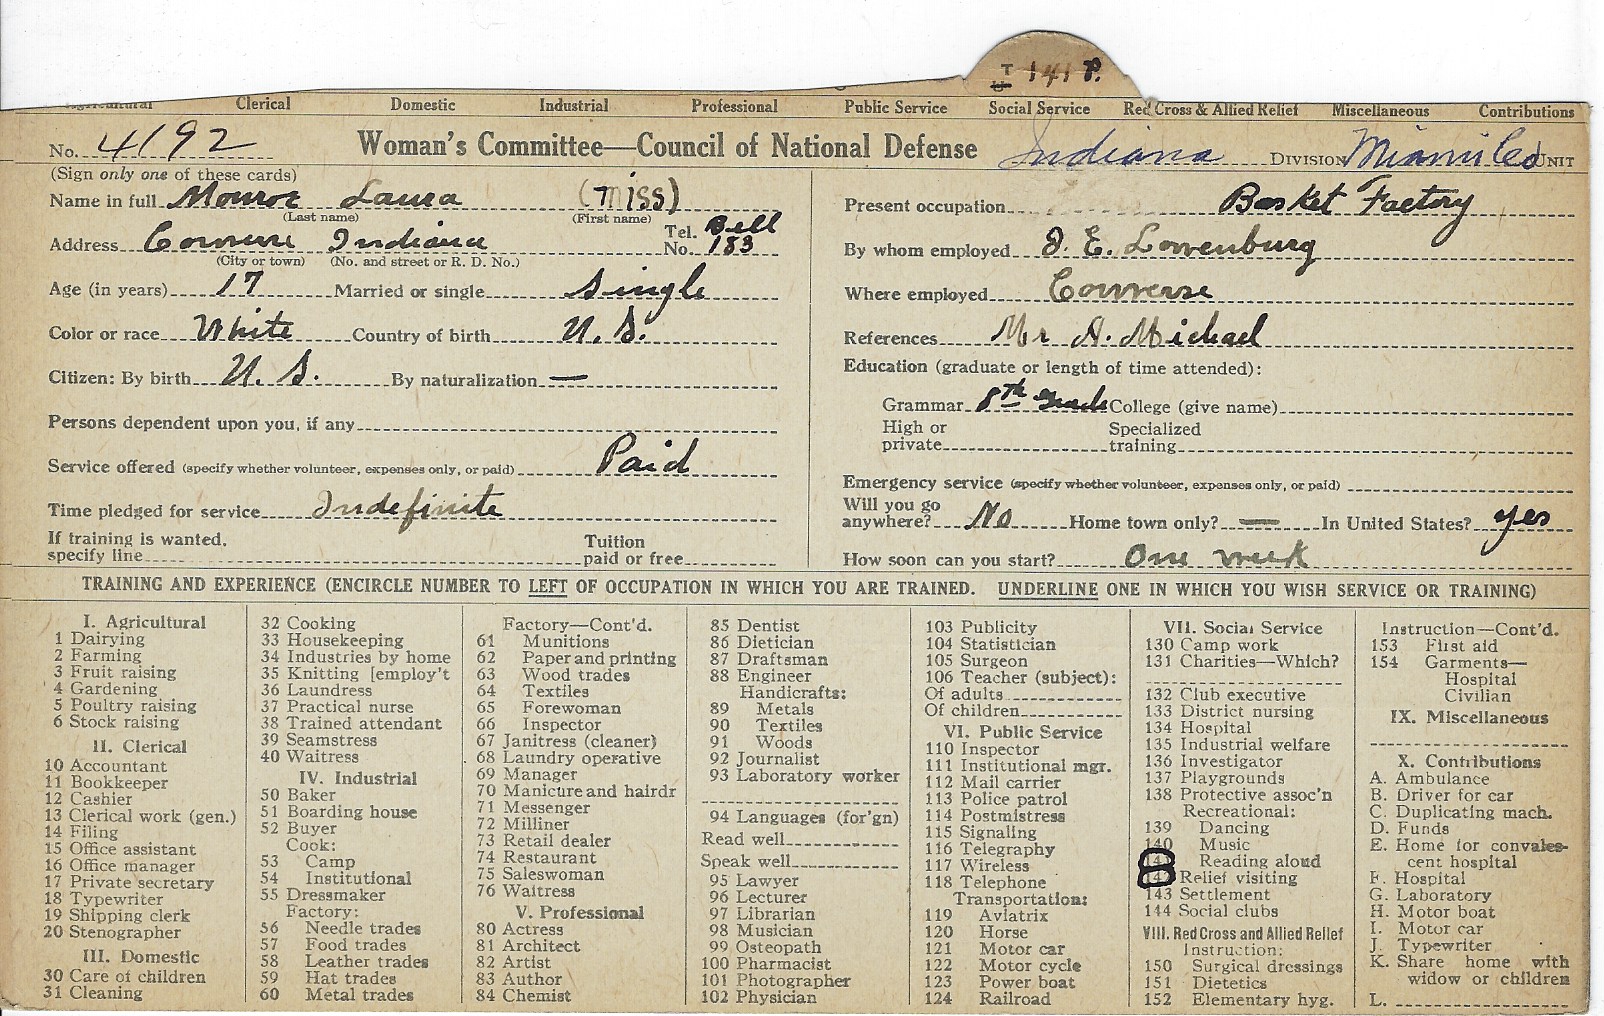 T 141 P.
Agricultural Clerical Domestic Industrial Professional Public Service Social Service Red Cross & Allied Relief Miscellaneous Contributions
No. 4192 Woman's Committee—Council of National Defense Indiana DIVISION Miami Co UNIT
(Sign only one of these cards)
Name in full Monroe Laura (Miss)
(Last name) (First name)
Address Converse Indiana Tel. No. Bell 183
(City or town) (No. and street or R. D. No.)
Age (in years) 17 Married or single Single
Color or race White Country of birth U. S.
Citizen: By birth U. S. By naturalization —
Persons dependent upon you, if any
Service offered (specify whether volunteer, expenses only, or paid) Paid
Time pledged for service Indefinite
If training is wanted, specify line Tuition paid or free
Present occupation Basket Factory
By whom employed J. E. Lowenburg
Where employed Converse
References Mr A. Michael
Education (graduate or length of time attended):
Grammar 8th Grade College (give name)
High or private Specialized training
Emergency service (specify whether volunteer, expenses only, or paid)
Will you go anywhere? No Home town only? — In United States? yes
How soon can you start? One week
TRAINING AND EXPERIENCE (ENCIRCLE NUMBER TO LEFT OF OCCUPATION IN WHICH YOU ARE TRAINED. UNDERLINE ONE IN WHICH YOU WISH SERVICE OR TRAINING)
I. Agricultural
1 Dairying
2 Farming
3 Fruit raising
4 Gardening
5 Poultry raising
6 Stock raising
II. Clerical
10 Accountant
11 Bookkeeper
12 Cashier
13 Clerical work (gen.)
14 Filing
15 Office assistant
16 Office manager
17 Private secretary
18 Typewriter
19 Shipping clerk
20 Stenographer
III. Domestic
30 Care of children
31 Cleaning
32 Cooking
33 Housekeeping
34 Industries by home
35 Knitting [employ't
36 Laundress
37 Practical nurse
38 Trained attendant
39 Seamstress
40 Waitress
IV. Industrial
50 Baker
51 Boarding house
52 Buyer
Cook:
53 Camp
54 Institutional
55 Dressmaker
Factory:
56 Needle trades
57 Food trades
58 Leather trades
59 Hat trades
60 Metal trades
Factory—Cont'd.
61 Munitions
62 Paper and printing
63 Wood trades
64 Textiles
65 Forewoman
66 Inspector
67 Janitress (cleaner)
68 Laundry operative
69 Manager
70 Manicure and hairdr
71 Messenger
72 Milliner
73 Retail dealer
74 Restaurant
75 Saleswoman
76 Waitress
V. Professional
80 Actress
81 Architect
82 Artist
83 Author
84 Chemist
85 Dentist
86 Dietician
87 Draftsman
88 Engineer
Handicrafts:
89 Metals
90 Textiles
91 Woods
92 Journalist
93 Laboratory worker
94 Languages (for'gn)
Read well
Speak well
95 Lawyer
96 Lecturer
97 Librarian
98 Musician
99 Osteopath
100 Pharmacist
101 Photographer
102 Physician
103 Publicity
104 Statistician
105 Surgeon
106 Teacher (subject):
Of adults
Of children
VI. Public Service
110 Inspector
111 Institutional mgr.
112 Mail carrier
113 Police patrol
114 Postmistress
115 Signaling
116 Telegraphy
117 Wireless
118 Telephone
Transportation:
119 Aviatrix
120 Horse
121 Motor car
122 Motor cycle
123 Power boat
124 Railroad
VII. Social Service
130 Camp work
131 Charities—Which?
132 Club executive
133 District nursing
134 Hospital
135 Industrial welfare
136 Investigator
137 Playgrounds
138 Protective assoc'n
Recreational:
139 Dancing
140 Music
141 Reading aloud
142 Relief visiting
143 Settlement
144 Social clubs
VIII. Red Cross and Allied Relief
Instruction:
150 Surgical dressings
151 Dietetics
152 Elementary hyg.
Instruction—Cont'd.
153 First aid
154 Garments—
Hospital
Civilian
IX. Miscellaneous
X. Contributions
A. Ambulance
B. Driver for car
C. Duplicating mach.
D. Funds
E. Home for convales-
cent hospital
F. Hospital
G. Laboratory
H. Motor boat
I. Motor car
J. Typewriter
K. Share home with
widow or children
L.